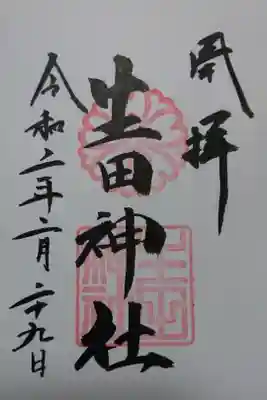 周拝
生田神社
令和二年二月二十九日